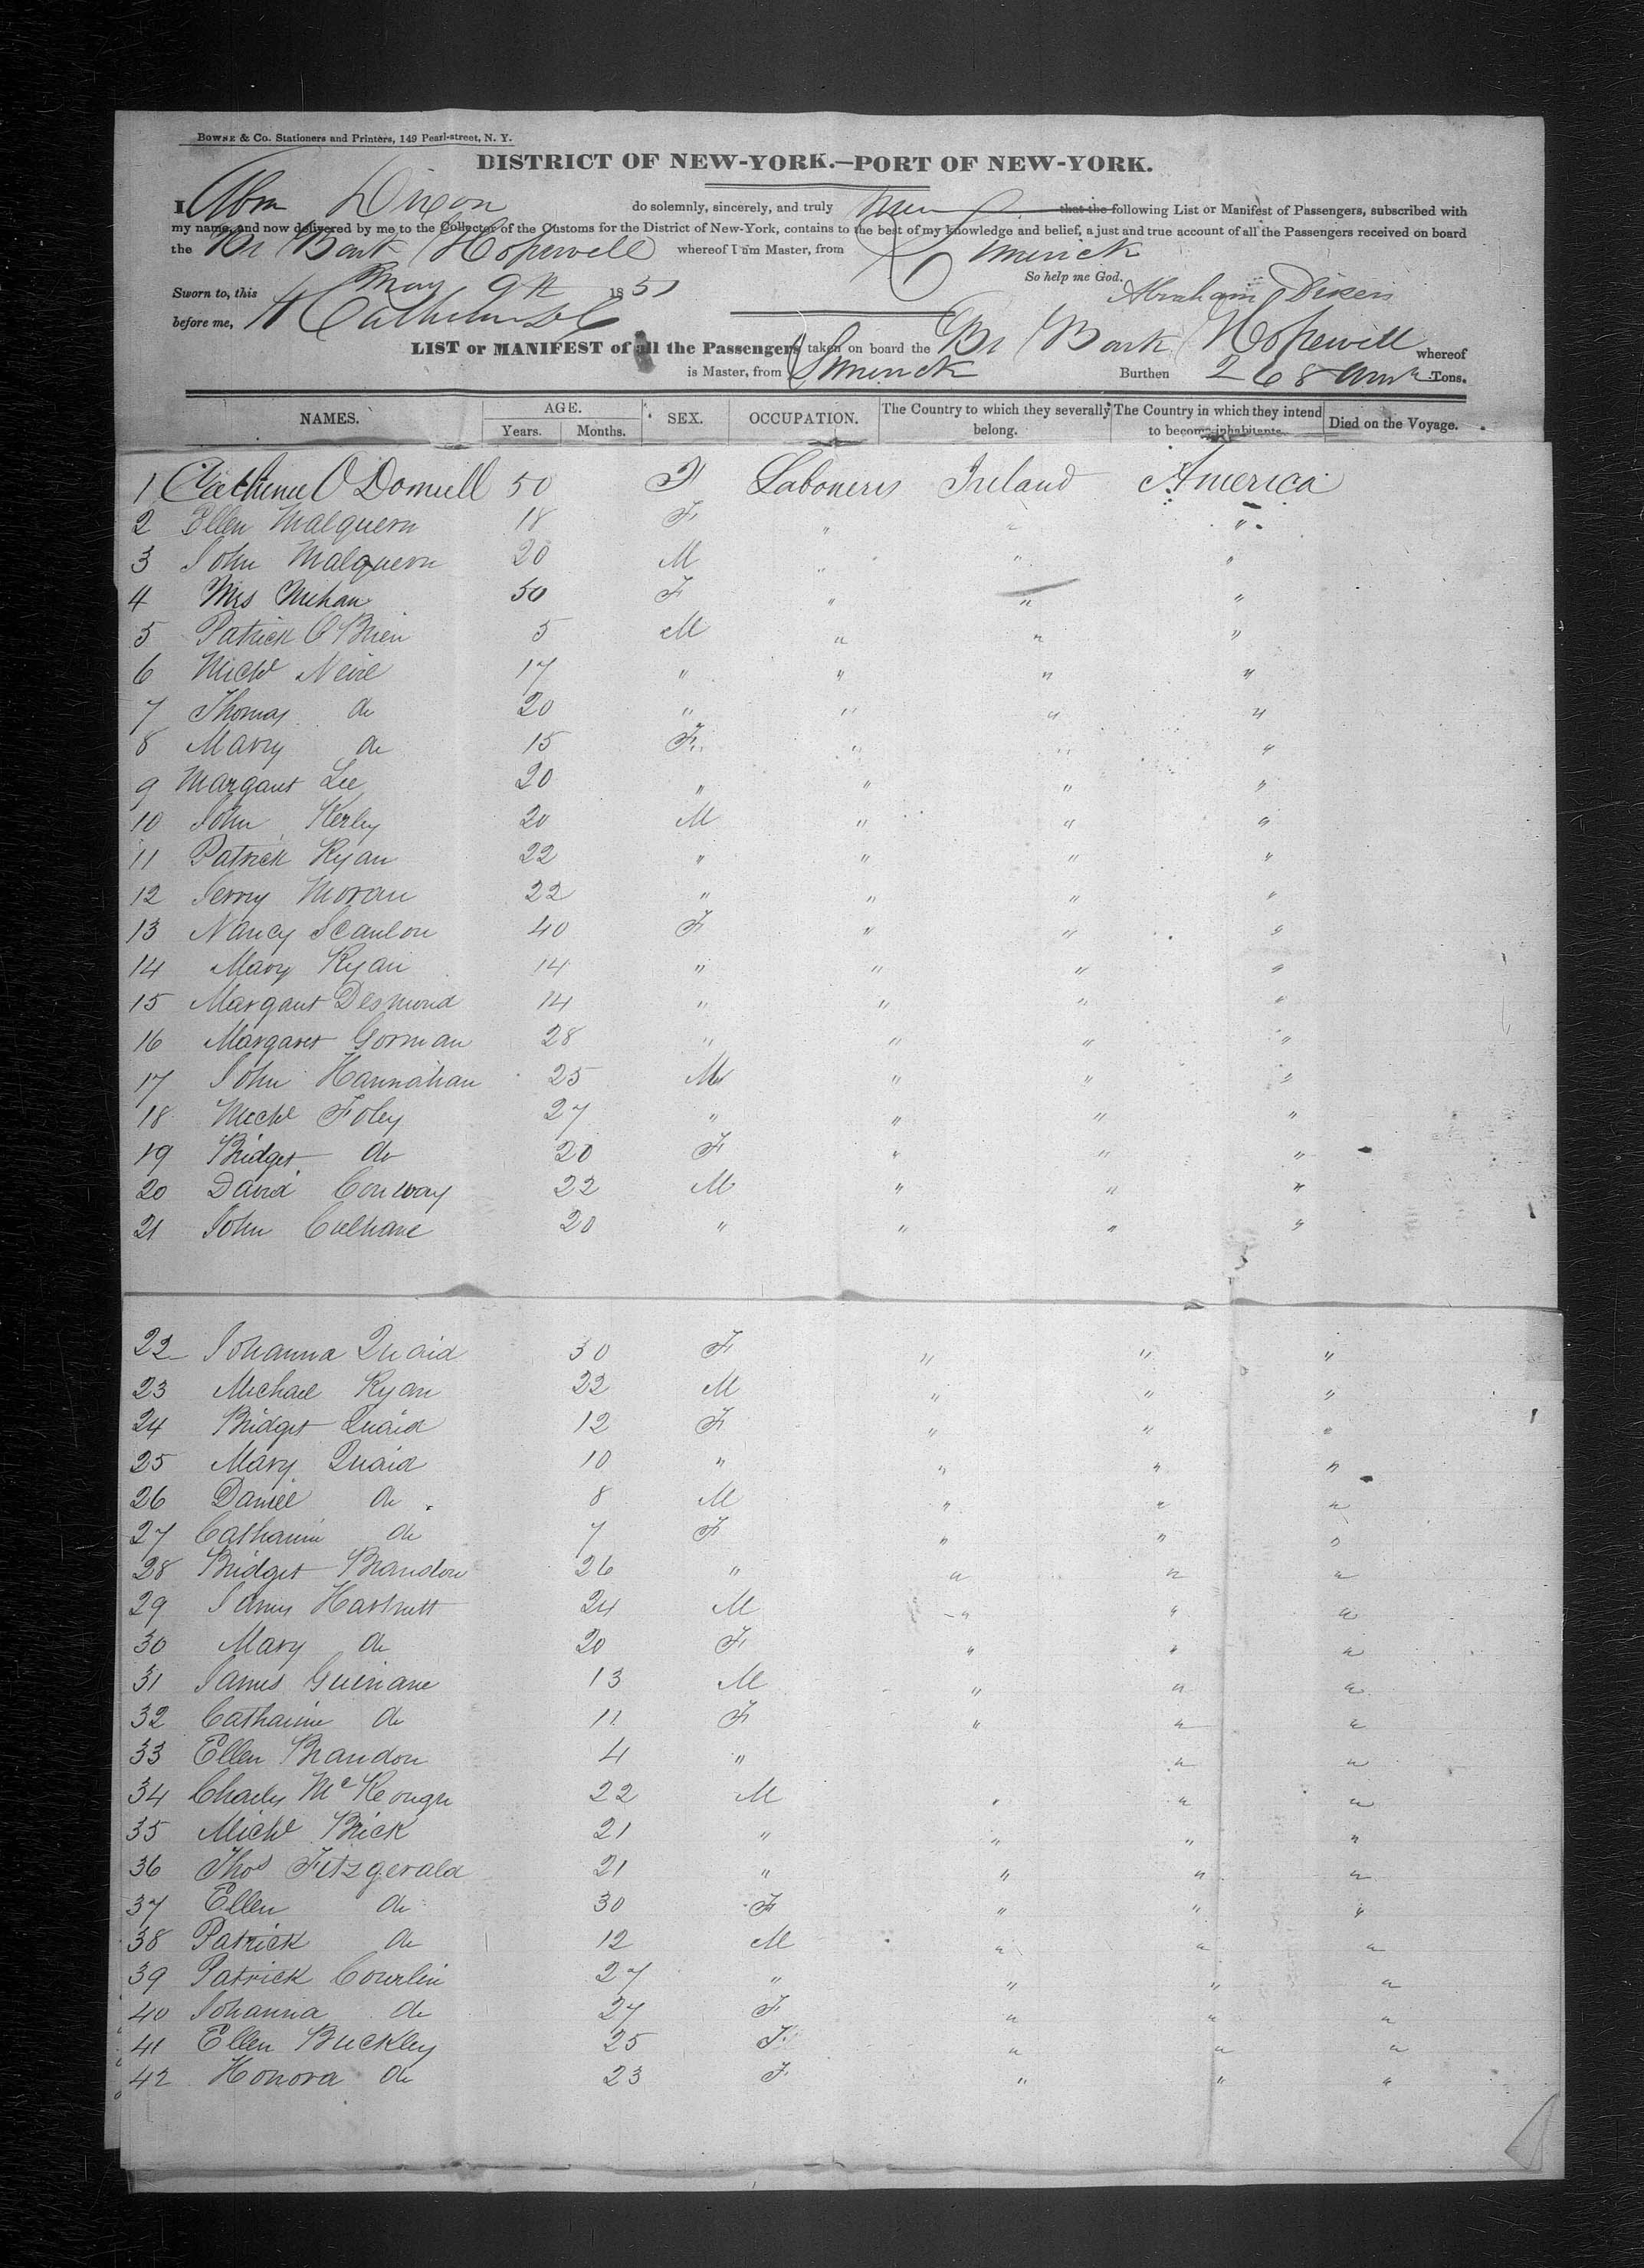 BOWNE & Co. Stationers and Printers, 149 Pearl-street, N. Y.
DISTRICT OF NEW-YORK.—PORT OF NEW-YORK.
I Abm Dixon do solemnly, sincerely, and truly that the following List or Manifest of Passengers, subscribed with
my name, and now delivered by me to the Collector of the Customs for the District of New-York, contains to the best of my knowledge and belief, a just and true account of all the Passengers received on board
the Br Bark Hopewell whereof I am Master, from Limerick
So help me God.
Sworn to, this May 9th 1851 Abraham Dixon
before me,
LIST or MANIFEST of all the Passengers taken on board the Br Bark Hopewell whereof
is Master, from Limerick Burthen 268 Tons.
NAMES. AGE. SEX. OCCUPATION. The Country to which they severally belong. The Country in which they intend to become inhabitants. Died on the Voyage.
Years. Months.
1 Catherine O Donnell 50 F Laborers Ireland America
2 Ellen Malquern 18 F " " "
3 John Malquern 20 M " " "
4 Mrs Mehan 50 F " " "
5 Patrick O Brien 5 M " " "
6 Michl Neile 17 " " " "
7 Thomas do 20 " " " "
8 Mary do 15 F " " "
9 Margaret Lee 20 " " " "
10 John Kerby 20 M " " "
11 Patrick Ryan 22 " " " "
12 Jerry Moran 22 " " " "
13 Nancy Scanlon 40 F " " "
14 Mary Ryan 14 " " " "
15 Margaret Desmond 14 " " " "
16 Margaret Gorman 28 " " " "
17 John Hannahan 25 M " " "
18 Michl Foley 27 " " " "
19 Bridget do 20 F " " "
20 David Conway 22 M " " "
21 John Culhane 20 " " " "
22 Johanna Quaid 30 F " " "
23 Michael Ryan 22 M " " "
24 Bridget Quaid 12 F " " "
25 Mary Quaid 10 " " " "
26 Daniel do 8 M " " "
27 Catharine do 7 F " " "
28 Bridget Brandon 26 " " " "
29 James Hartnett 24 M " " "
30 Mary do 20 F " " "
31 James Guinane 13 M " " "
32 Catharine do 11 F " " "
33 Ellen Brandon 4 " " "
34 Charles McKeough 22 M " " "
35 Michl Brick 21 " " " "
36 Thos Fitzgerald 21 " " " "
37 Ellen do 30 F " " "
38 Patrick do 12 M " " "
39 Patrick Courlin 27 " " " "
40 Johanna do 27 F " " "
41 Ellen Buckley 25 F " " "
42 Honora do 23 F " " "